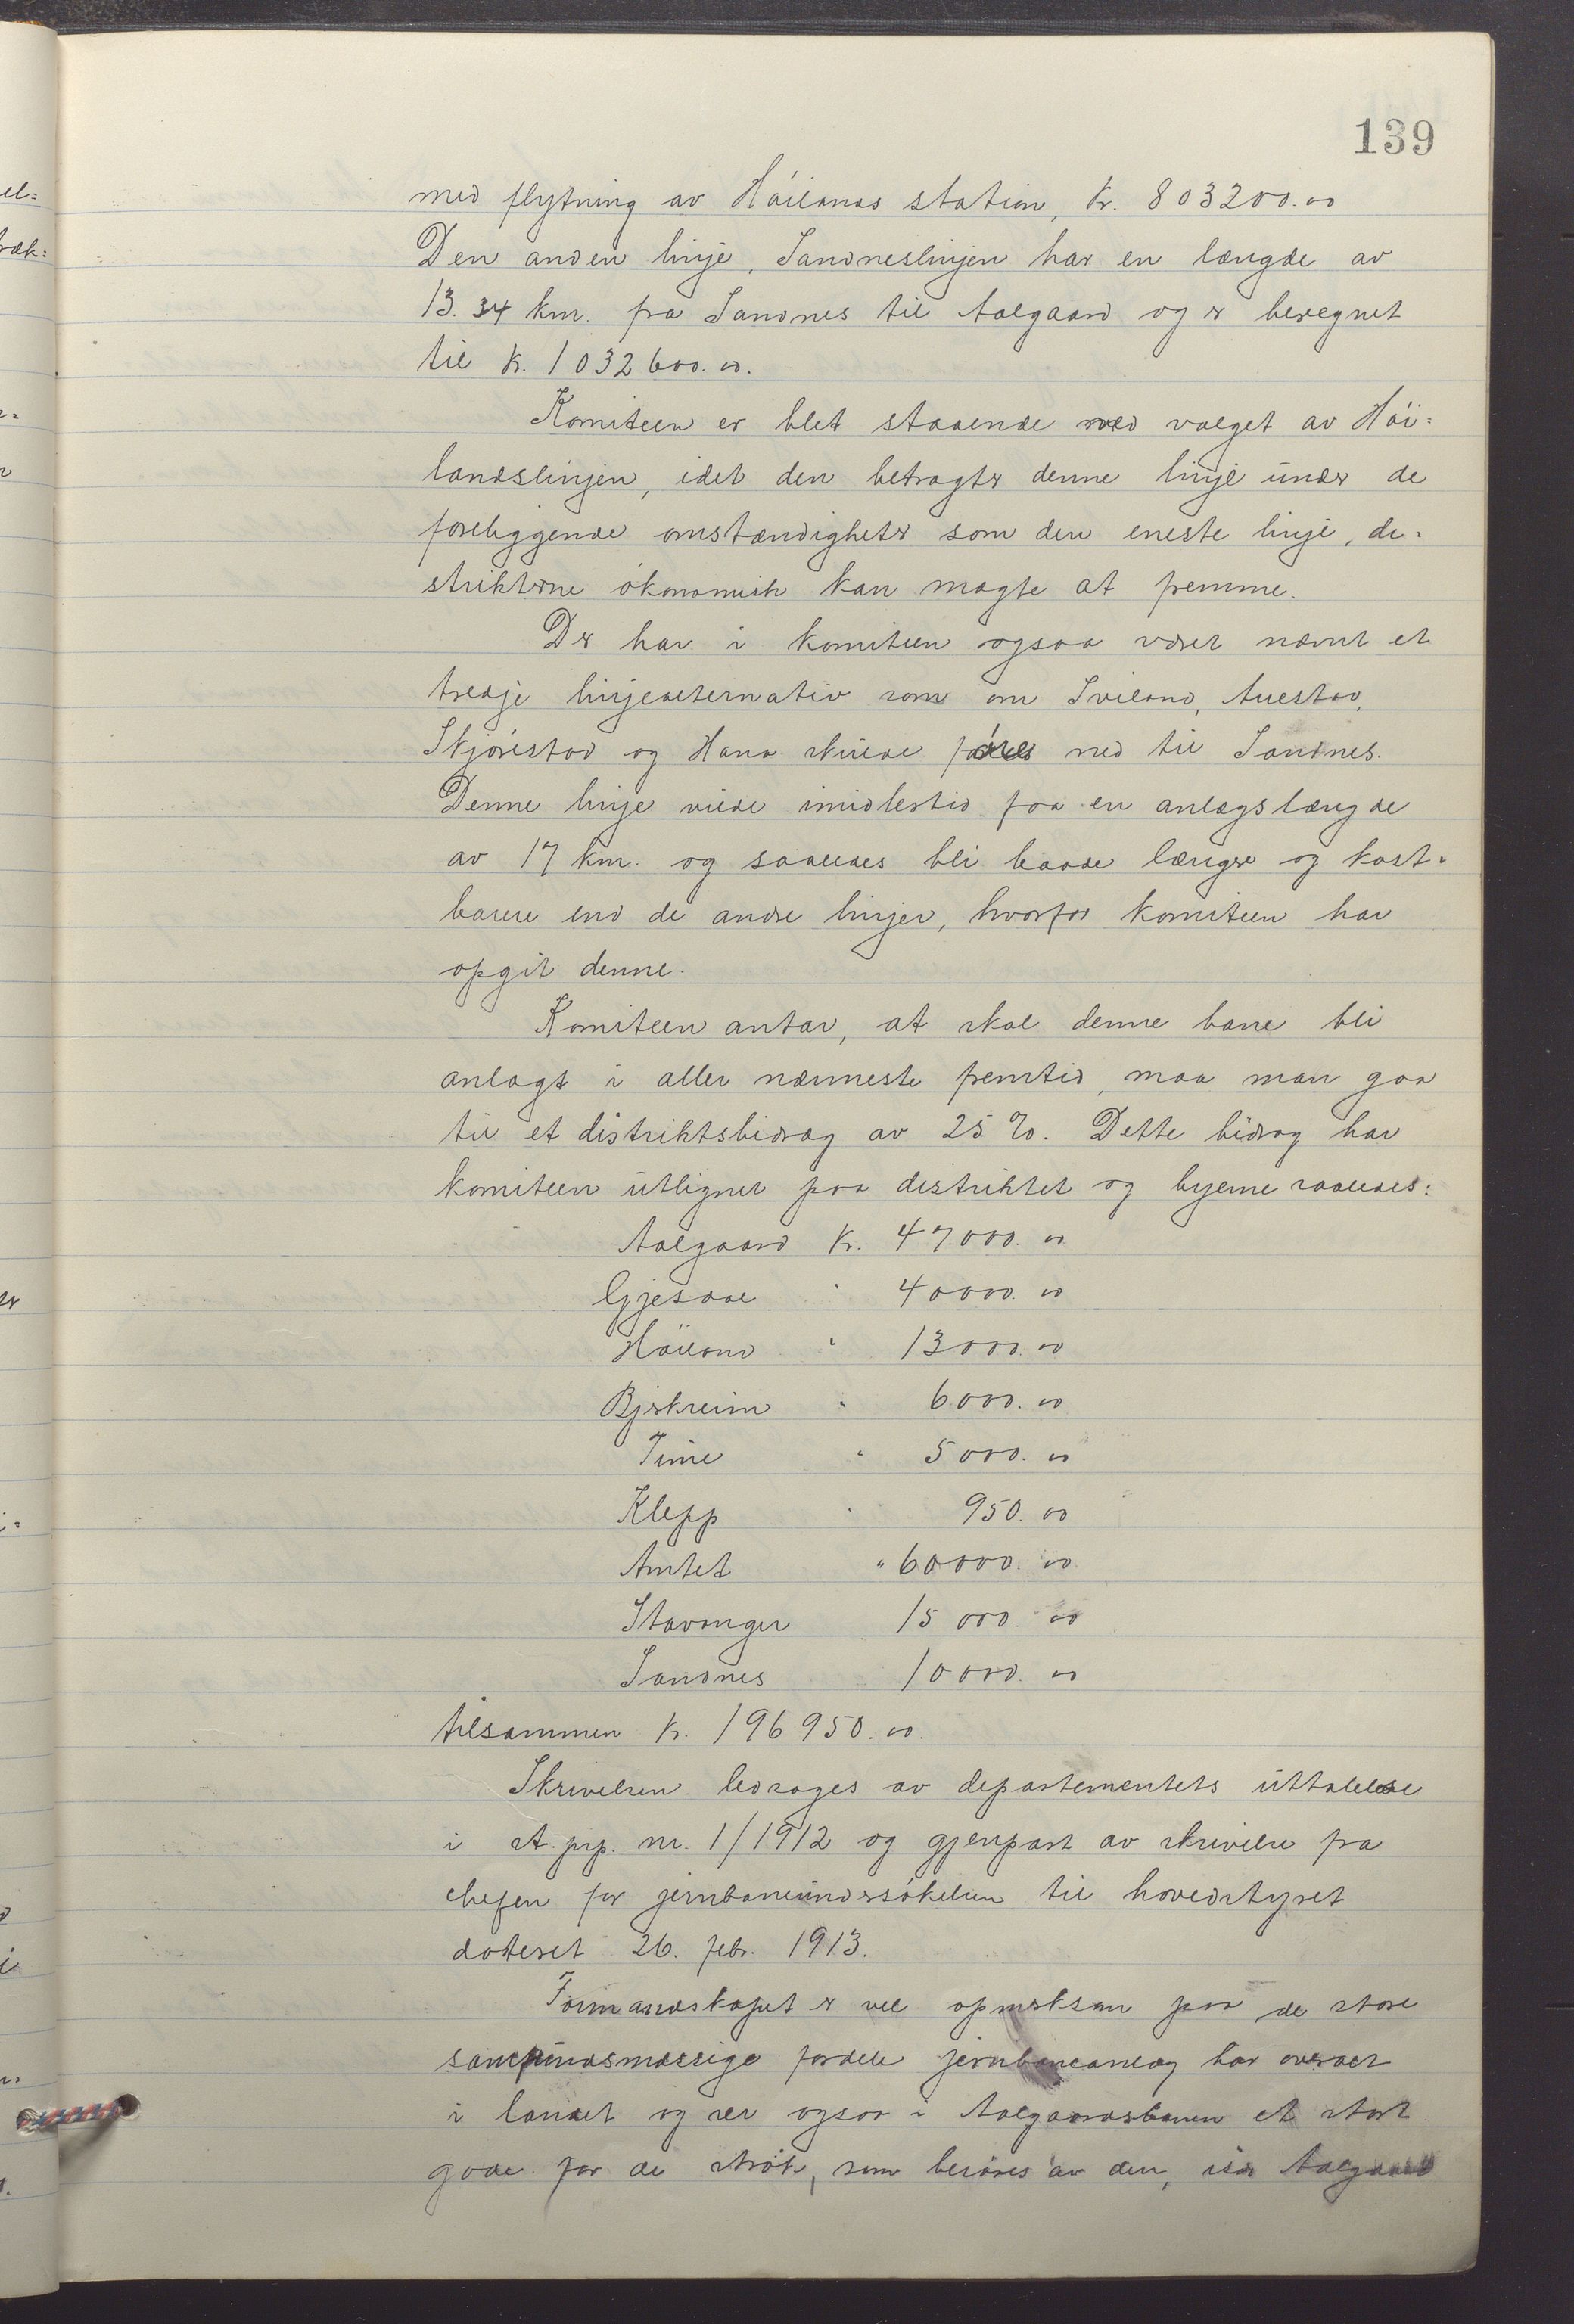 139
med flytning av Höilands station, kr. 803200.00
Den anden linje, Sandneslinjen har en længde av
13.34 km. fra Sandnes til Aalgaard og er beregnet
til kr. 1032600.00.
Komiteen er blet staaende ved valget av Höi=
landslinjen, idet den betragter denne linje under de
foreliggende omstændigheter som den eneste linje, di=
strikterne ökonomisk kan magte at fremme.
Der har i komiteen ogsaa været nævnt et
tredje linjealternativ som om Sviland, Auestad,
Skjörestad og Hana skulde föres ned til Sandnes.
Denne linje vilde imidlertid faa en anlægslængde
av 17 km. og saaledes bli baade længer og kost=
barere end de andre linjer, hvorfor komiteen har
opgit denne.
Komiteen antar, at skal denne bane bli
anlagt i aller nærmeste fremtid, maa man gaa
til et distriktsbidrag av 25 %. Dette bidrag har
komiteen utlignet paa distriktet og byerne saaledes:
Aalgaard kr. 47000.00
Gjesdal " 40000.00
Höiland " 13000.00
Bjerkreim " 6000.00
Time " 5000.00
Klepp " 950.00
Amtet " 60000.00
Stavanger 15000.00
Sandnes 10000.00
tilsammen kr. 196950.00.
Skrivelsen ledsages av departementets uttalelse
i st. prp. nr. 1/1912 og gjenpart av skrivelse fra
chefen for jernbaneundersökelsen til hovedstyret
dateret 26. febr. 1913.
Formandskapet er vel opmerksam paa de store
samfundsmæssige fordele jernbaneanlæg har overalt
i landet og ser ogsaa i Aalgaardsbanen et stort
gode for de strök, som beröres av den, især Aalgaard
el=
ræk=